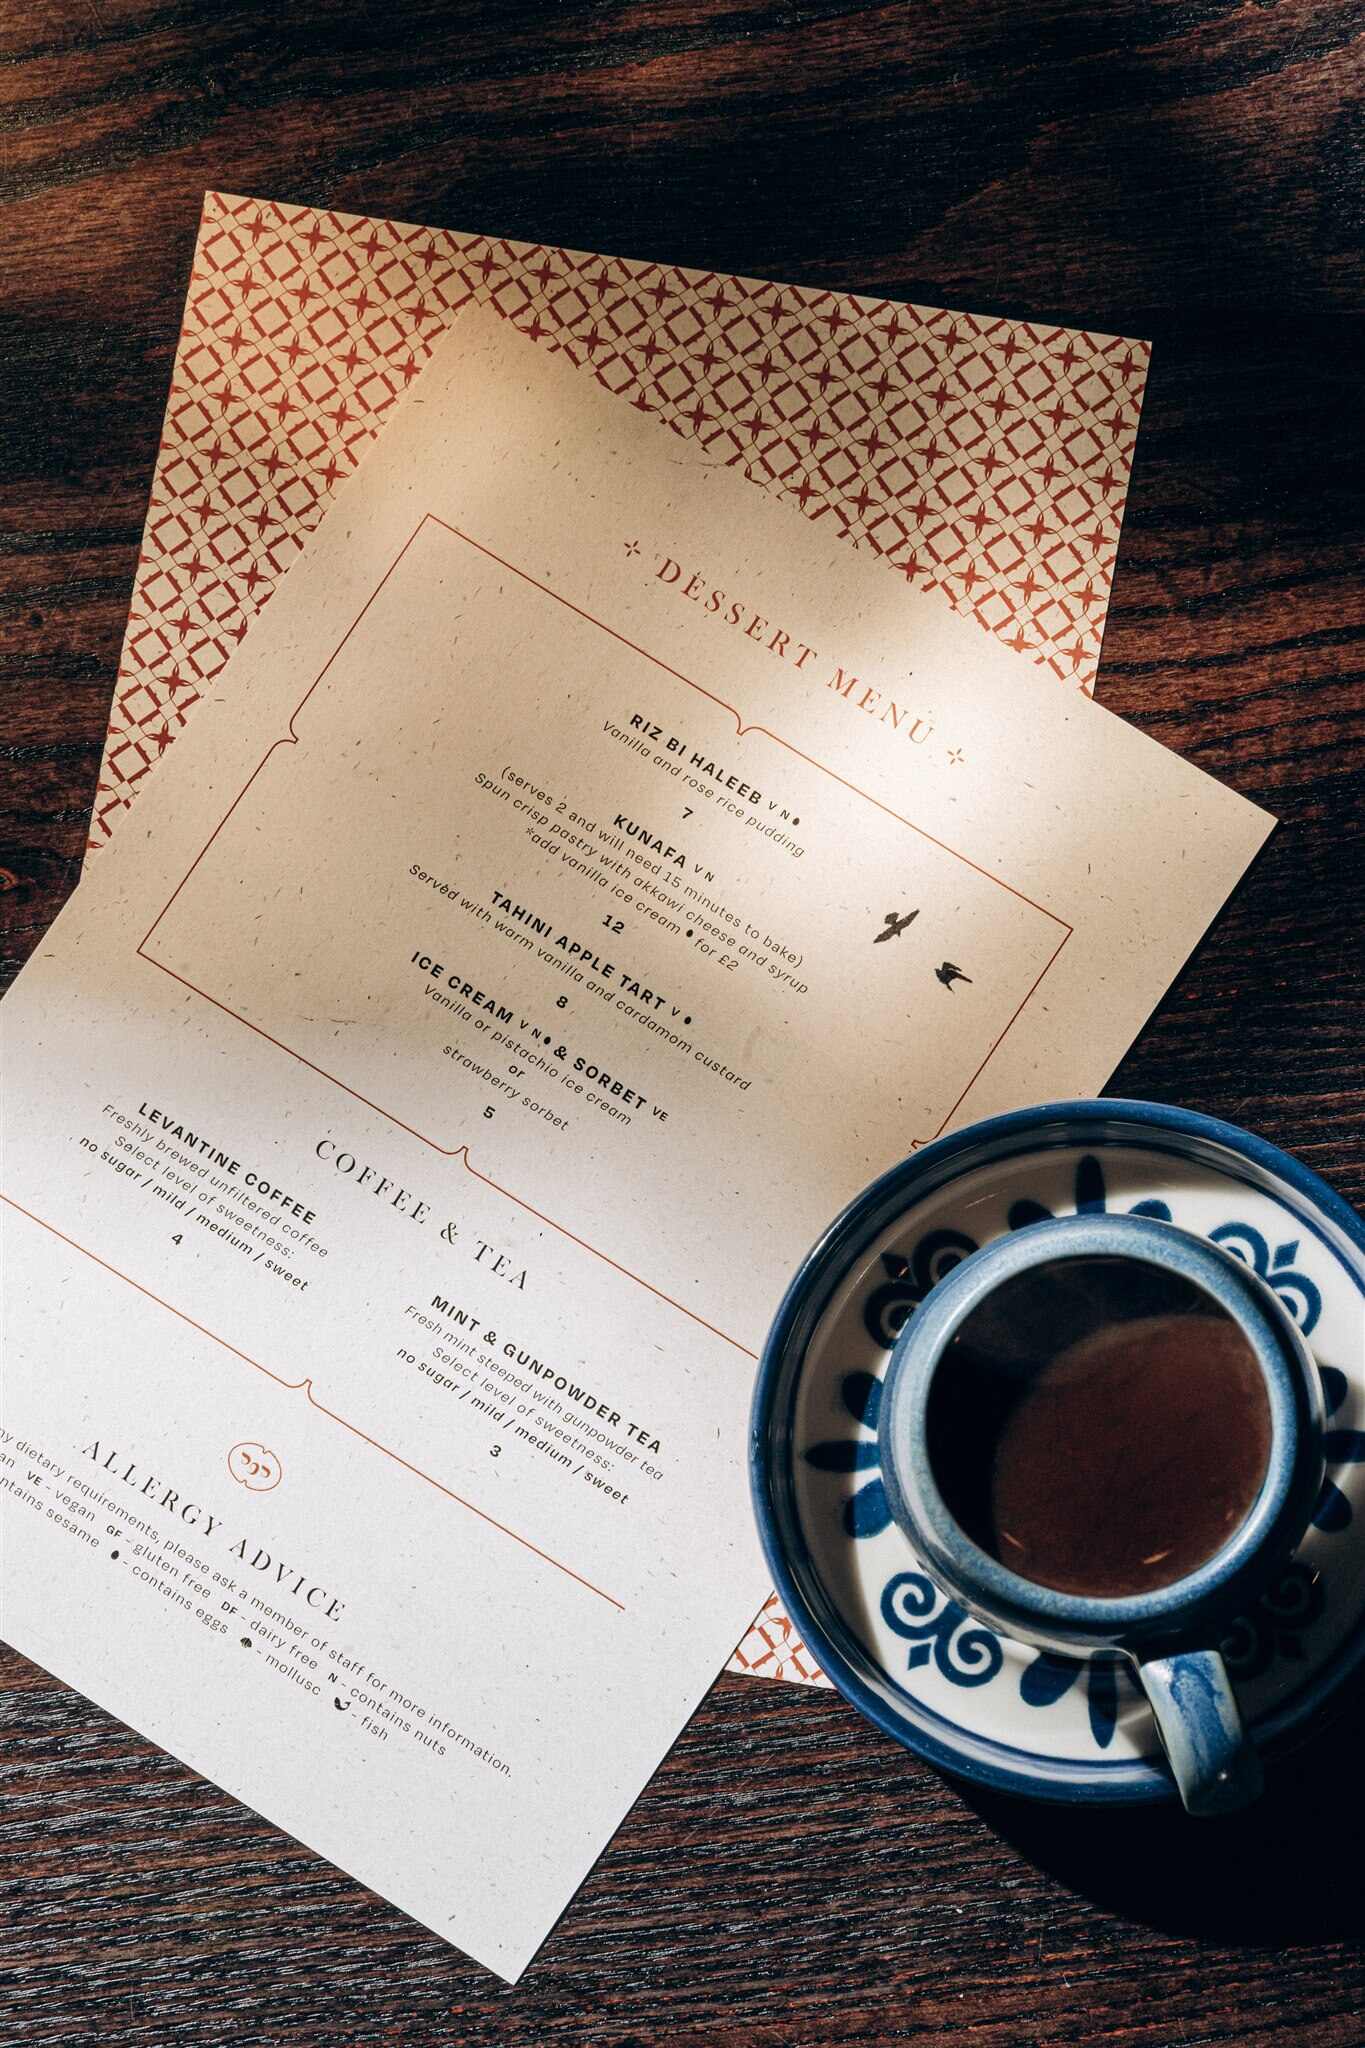 DESSERT MENU
RIZ BI HALEEB V N
Vanilla and rose rice pudding
7
KUNAFA V N
(serves 2 and will need 15 minutes to bake)
Spun crisp pastry with akkawi cheese and syrup
*add vanilla ice cream for £2
12
TAHINI APPLE TART V
Served with warm vanilla and cardamom custard
8
ICE CREAM V N & SORBET VE
Vanilla or pistachio ice cream
or
strawberry sorbet
5
COFFEE & TEA
LEVANTINE COFFEE
Freshly brewed unfiltered coffee
Select level of sweetness:
no sugar / mild / medium / sweet
4
MINT & GUNPOWDER TEA
Fresh mint steeped with gunpowder tea
Select level of sweetness:
no sugar / mild / medium / sweet
3
ALLERGY ADVICE
dietary requirements, please ask a member of staff for more information.
VE - vegan GF - gluten free DF - dairy free N - contains nuts
sesame - contains eggs - mollusc - fish